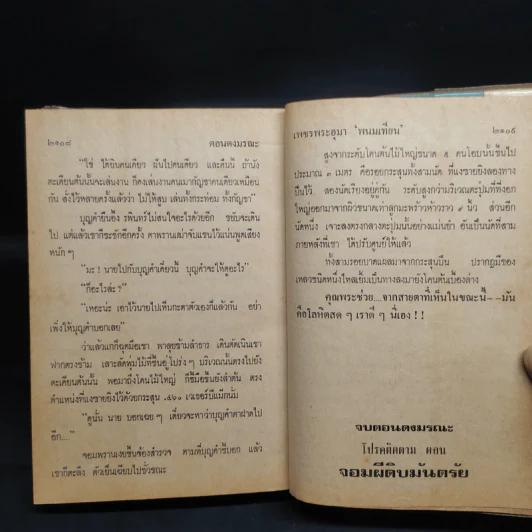 ๒๑๐๘ ตอนดงมรณะ
“ใช่ ได้ยินคนเดียว ฉันไปคนเดียว และคืนนี้ ถ้านัง
ตะเคียนต้นนั้นจะเล่นงาน ก็คงเล่นงานคนเมากัญชาคนเดียวเหมือน
กัน สั่งไว้หลายครั้งแล้วว่า ไม่ให้สูบ เล่นทั้งกระท่อม ทั้งกัญชา”
บุญคำยืนงง รพินทร์ไม่สนใจอะไรด้วยอีก ขยับจะเดิน
ไป แต่แล้วเขาก็ชะงักอีกครั้ง ตาพรานเฒ่าจับแขนไว้แน่นพูดเสียง
หนัก ๆ
“มะ! นายไปกับบุญคำเดี๋ยวนี้ บุญคำจะให้ดูอะไร”
“ก็อะไรล่ะ?”
“เหอะน่ะ เอาไว้นายไปเห็นกะตาตัวเองก็แล้วกัน อย่า
เพิ่งให้บุญคำบอกเลย”
ว่าแล้วแกก็ฉุดมือเขา พาลุยข้ามลำธาร เดินตัดเนินเขา
ฟากตรงข้าม เลาะลัดพุ่มไม้ที่ขึ้นอยู่โปร่ง ๆ บริเวณนั้นตรงไปยัง
ตะเคียนต้นนั้น พอมาถึงโคนไม้ใหญ่ ก็ชี้มือขึ้นยังลำต้น ตรง
ตำแหน่งที่แงซายยิงไว้ด้วยกระสุน .๔๖๐ เวเธอร์บีแม็กนั่ม
“ดูนั่น นาย บอกเฉย ๆ เดี๋ยวจะหาว่าบุญคำตาฝาดไป
อีก...”
จอมพรานเงยขึ้นจ้องสำรวจ ตามที่บุญคำชี้บอก แล้ว
เขาก็ตะลึง ตัวเย็นเฉียบไปชั่วขณะ
เพชรพระอุมา ‘พนมเทียน’ ๒๑๐๙
สูงจากระดับโคนต้นไม้ใหญ่ขนาด ๕ คนโอบนั้นขึ้นไป
ประมาณ ๓ เมตร คือรอยกระสุนทั้งสามนัด ที่แงซายยิงสองทาง
ปืนไว้ สองนัดเรียงอยู่คู่กัน ระดับสูงกว่าบริเวณตะปุ่มที่พึ่งงอก
ใหญ่ออกมาจากผิวขนาดเท่าลูกมะพร้าวห้าวราว ๑ นิ้ว ส่วนอีก
นัดหนึ่ง เจาะลงตรงกลางตะปุ่มนั้นอย่างแม่นยำ อันเป็นนัดที่สาม
ภายหลังที่เขา ได้ปรับศูนย์ให้แล้ว
ทั้งสามรอยบาดแผลมาจากกระสุนปืน ปรากฏมีของ
เหลวชนิดหนึ่งไหลเยิ้มเป็นทางลงมายังโคนต้นเบื้องล่าง
คุณพระช่วย...จากสายตาที่เห็นในขณะนี้--มัน
คือโลหิตสด ๆ เราดี ๆ นี่เอง!!
จบตอนดงมรณะ
โปรดติดตาม ตอน
จอมผีดิบมันตรัย